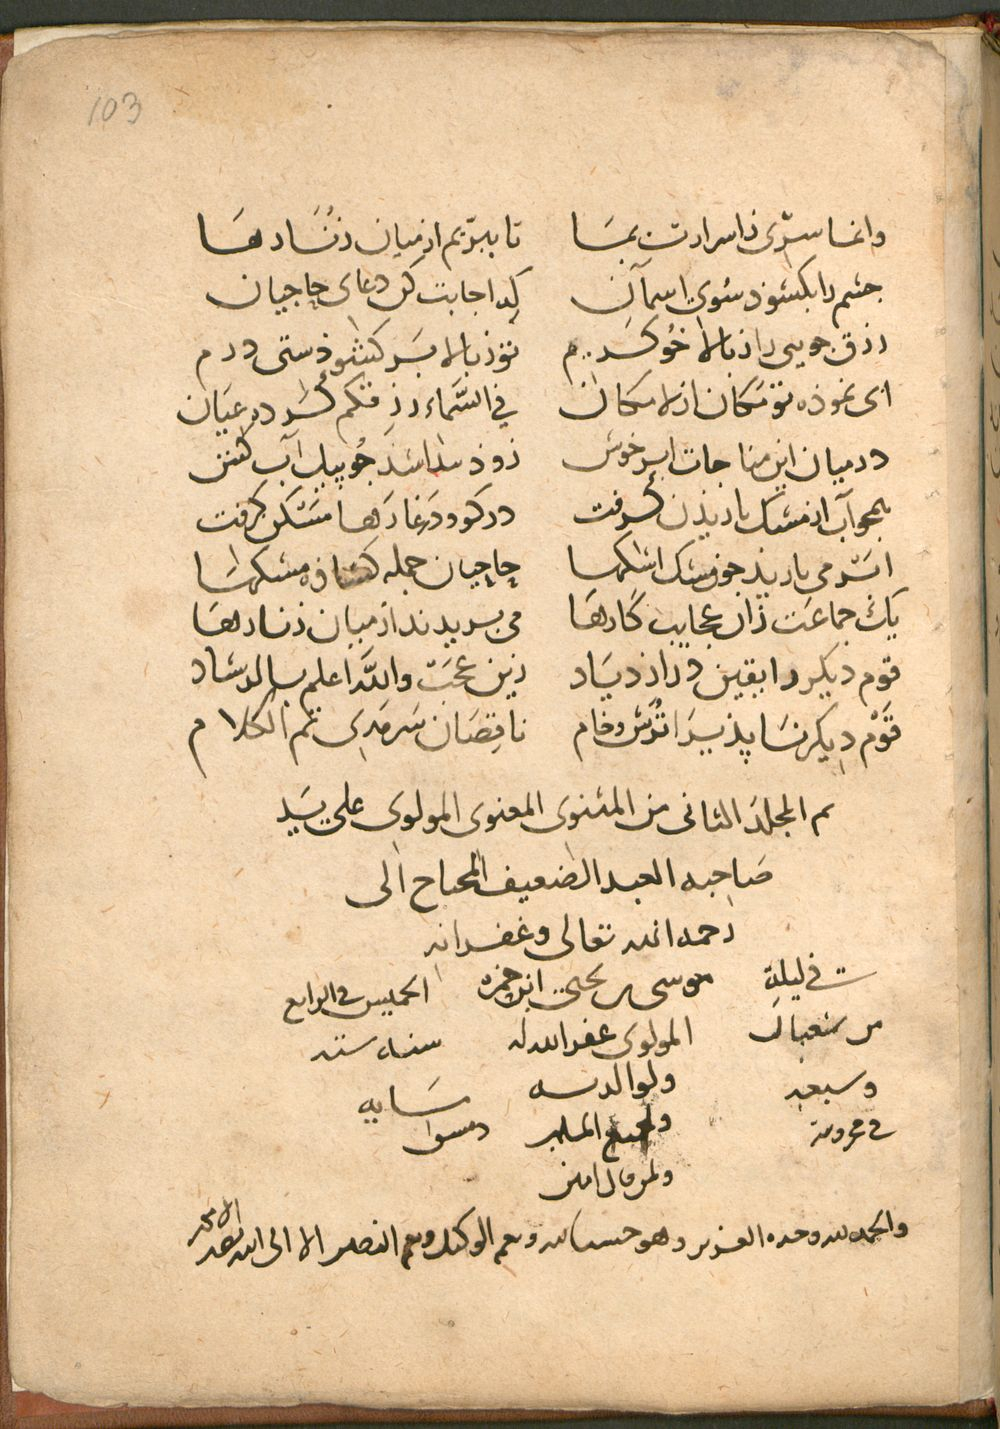 103
وانما سرّی ز اسرارت بما تا ببرّیم از میان زنّارها
چشم را بکشوذ سوی اسمان که اجابت کن دعای حاجیان
رزق جویی را ز بالا خوکرم تو ز بالا بر کشوذستی درم
ای نموذه تو مکان از لامکان في السّماء رزقکم کرده عیان
در میان این مناجات ابر خوش زوذ بیدا شذ جو بیل آب کش
همجو آب از مشک باریذن کرفت در کو و در غارها مسکن کرفت
ابر می بارید جون مشک اشکها حاجیان جمله کشاذه مشکها
یک جماعت زان عجایب کارها می بریدند از میان زنارها
قوم دیکر را یقین در ازدیاد زین عجب والله اعلم بالرشاد
قوم دیکر ناپذیرا ترش و خام ناقصان سرمدی تم الکلام
تم المجلد الثانی من المثنوی المعنوی المولوی علی ید
صاحبه العبد الضعیف المحتاج الی
رحمه الله تعالی وغفرانه
في لیلة موسی بن یحیی ابن حمزه الخمیس في الرابع
من شعبان المولوی غفر الله له سنه ستة
وسبعین ولوالدیه ستمایه
في محروسة ولجمیع المسلمین دمشق
ولمن قال امین
والحمد لله وحده العزیز وهو حسبنا الله ونعم الوکیل ونعم النصیر الا الی الله تصیر الامور